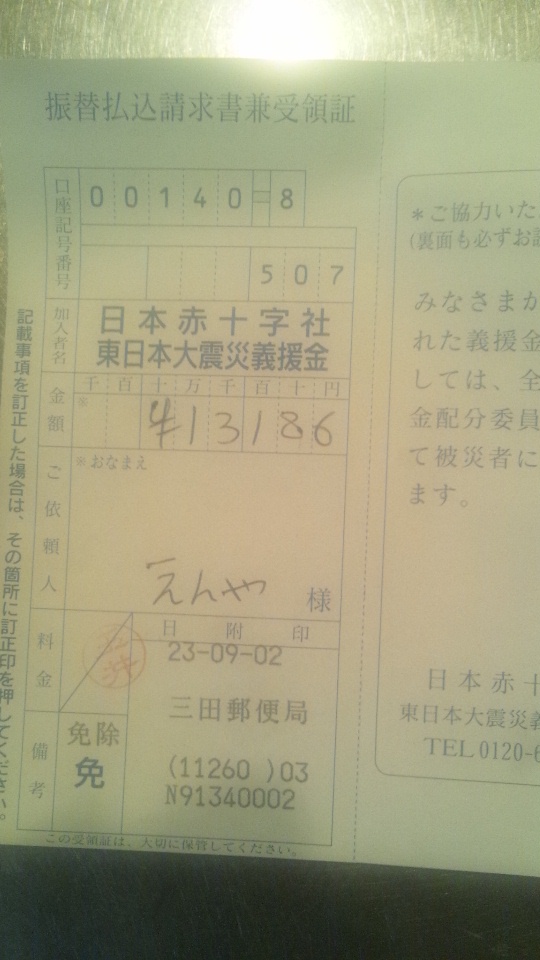 振替払込請求書兼受領証
口座記号番号
00140=8
507
加入者名
日本赤十字社
東日本大震災義援金
金額
千百十万千百十円
※
¥13186
ご依頼人
※おなまえ
えんや 様
料金
日附印
23-09-02
三田郵便局
備考
免除
免
(11260 )03
N91340002
この受領証は、大切に保管してください。
記載事項を訂正した場合は、その箇所に訂正印を押してください。
*ご協力いた
(裏面も必ずお
みなさまか
れた義援金
しては、全
金配分委員
て被災者に
ます。
日本赤十
東日本大震災義
TEL 0120-6